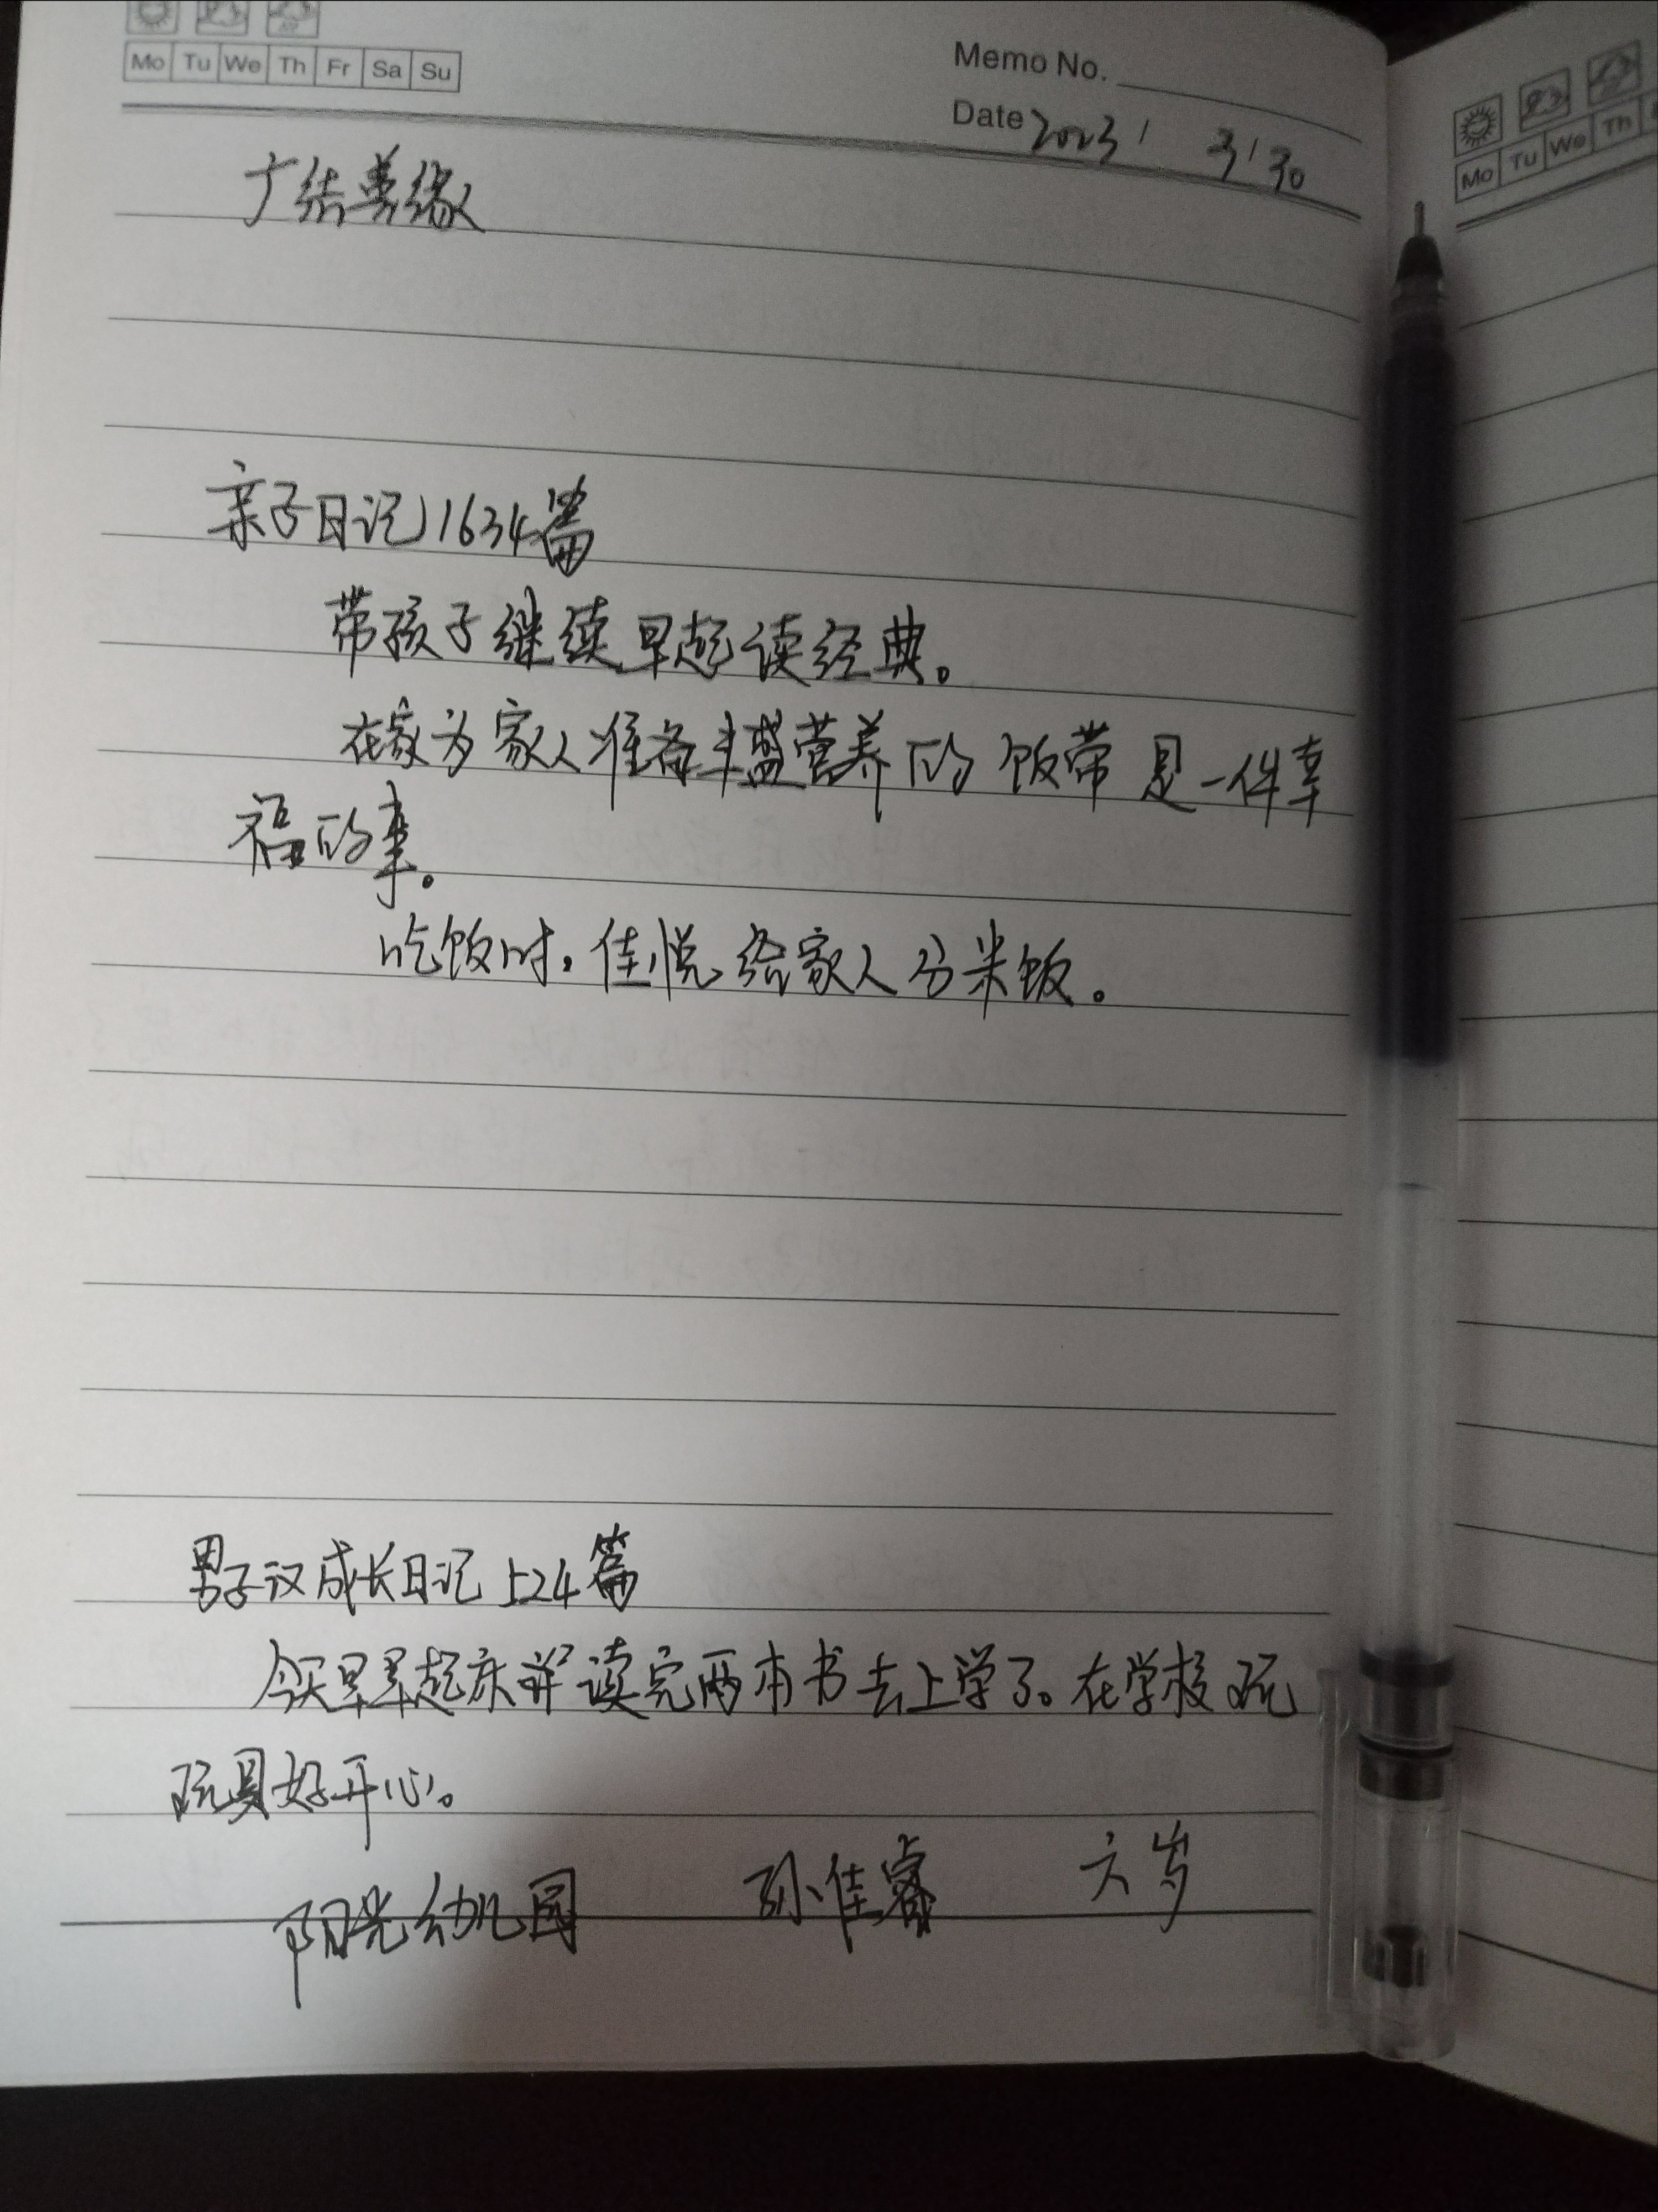 Mo Tu We Th Fr Sa Su
Memo No.
Date 2023/ 3/30
Mo Tu We Th
广结善缘
亲子日记1634篇
带孩子继续早起读经典。
在家为家人准备丰盛营养的饭带是一件幸
福的事。
吃饭时,佳悦给家人分米饭。
男子汉成长日记 24篇
今天早早起床 读完两本书去上学了。在学校玩
玩具好开心。
阳光幼儿园 孙佳睿 六岁